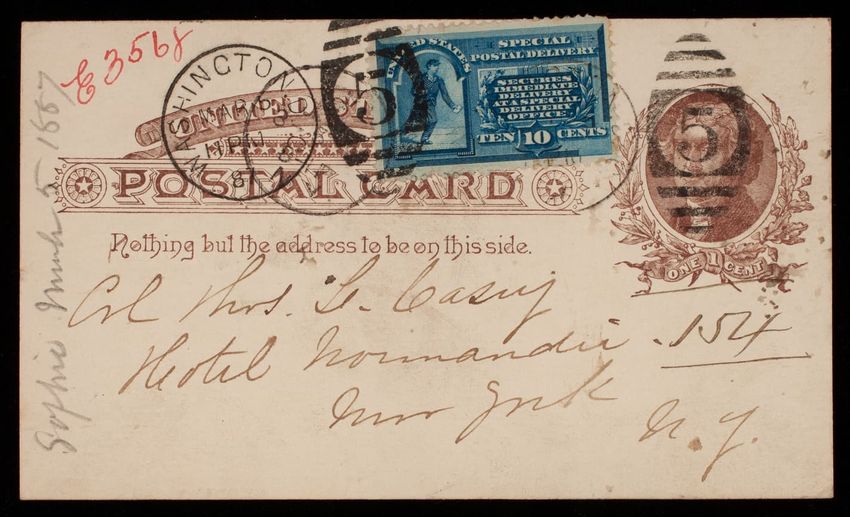 E 3568
WASHINGTON
MAR 5
11 PM
87
UNITED STATES
SPECIAL
POSTAL DELIVERY
SECURES
IMMEDIATE
DELIVERY
AT A SPECIAL
DELIVERY
OFFICE.
TEN 10 CENTS
5
5
POSTAL CARD
Nothing but the address to be on this side.
ONE 1 CENT
Col Thos. L. Casey
Hotel Normandie . 154
New York
N. Y.
Sophie March 5 1887